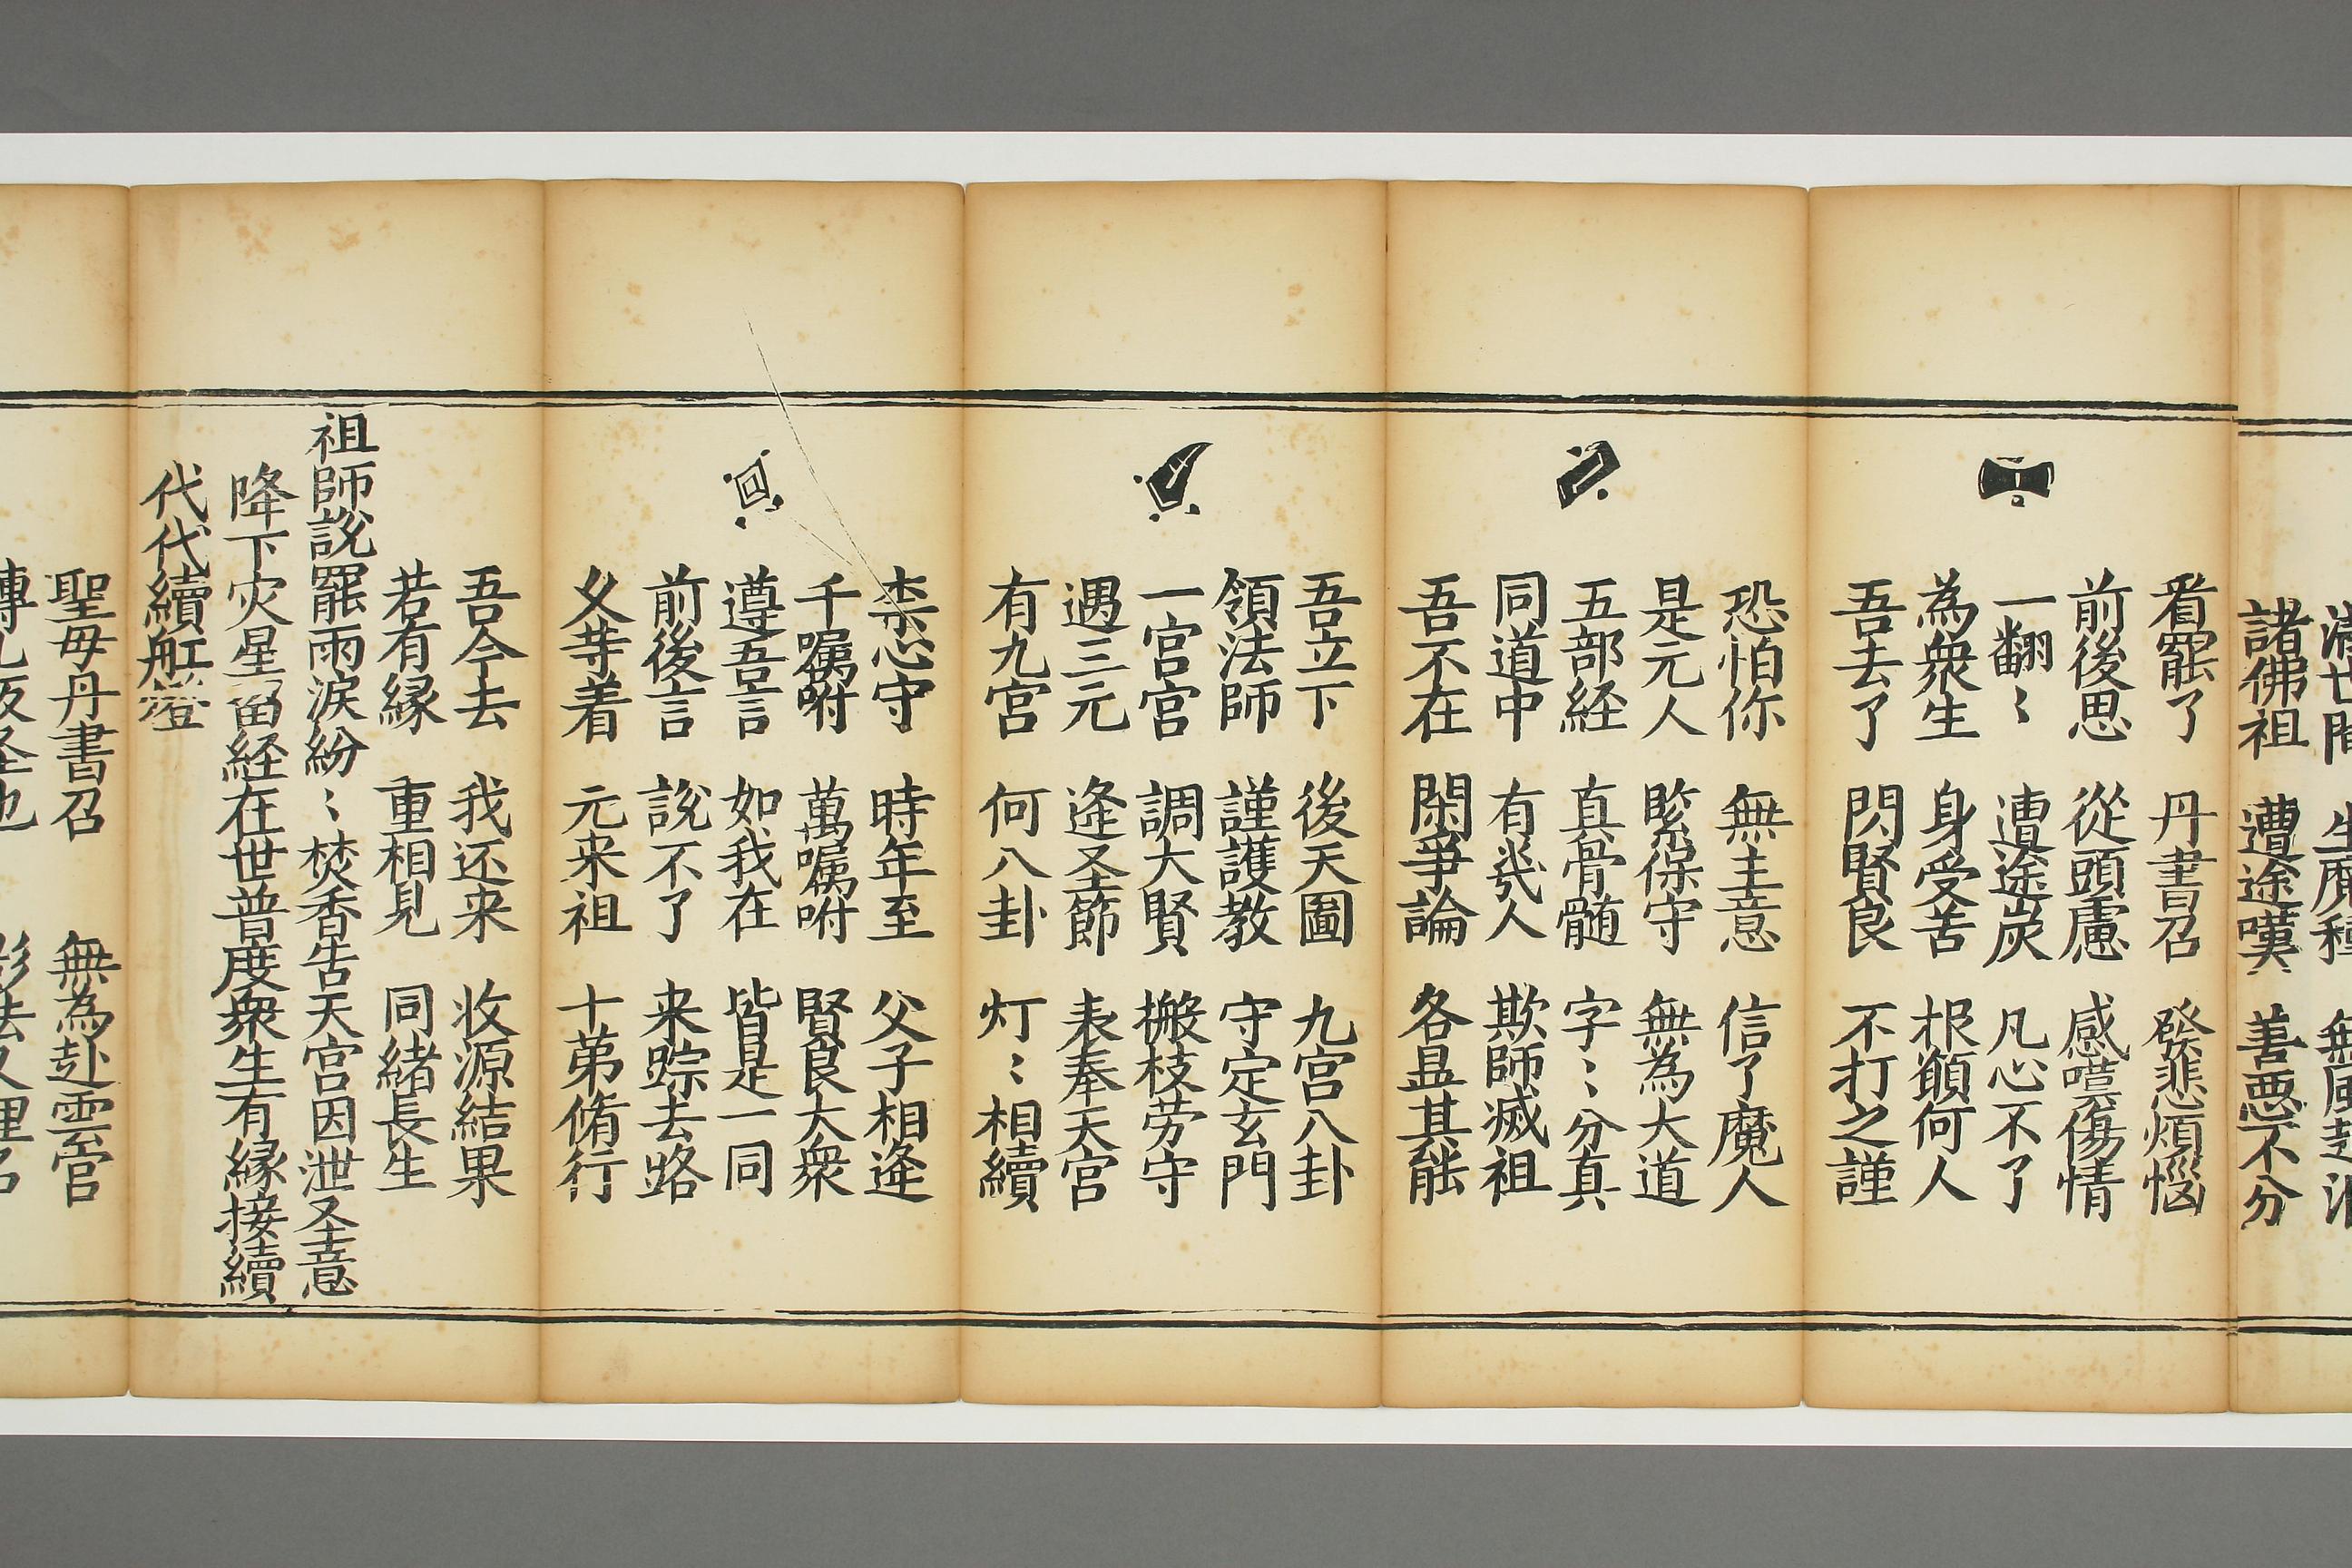 满世間 生魔種 無風起
諸佛祖 遭途嘆 善悪不分
看罷了 丹書召 發悲煩惱
前後思 從頭慮 感嘆傷情
一翻〻 遭途炭 凡心不了
為衆生 身受苦 根顧何人
吾去了 閃賢良 不打之謹
恐怕你 無主意 信了魔人
是元人 緊保守 無為大道
五部経 真骨髄 字〻分真
同道中 有幾人 欺師滅祖
吾不在 閑爭論 各显其能
吾立下 後天圖 九宮八卦
領法師 謹護教 守定玄門
一宮宮 調大賢 搬枝劳守
遇三元 逄圣節 表奉天宮
有九宮 何八卦 灯〻相續
柰心守 時年至 父子相逄
千嘱咐 萬嘱咐 賢良大衆
遵吾言 如我在 皆是一同
前後言 說不了 来踪去路
父等着 元来祖 十苐脩行
吾今去 我还来 收源結果
若有縁 重相見 同緒長生
祖師說罷雨淚紛〻焚香告天宮因泄圣意
降下灾星留経在世普度衆生有縁接續
代代續舡燈
聖毋丹書召 無為赴雲宮